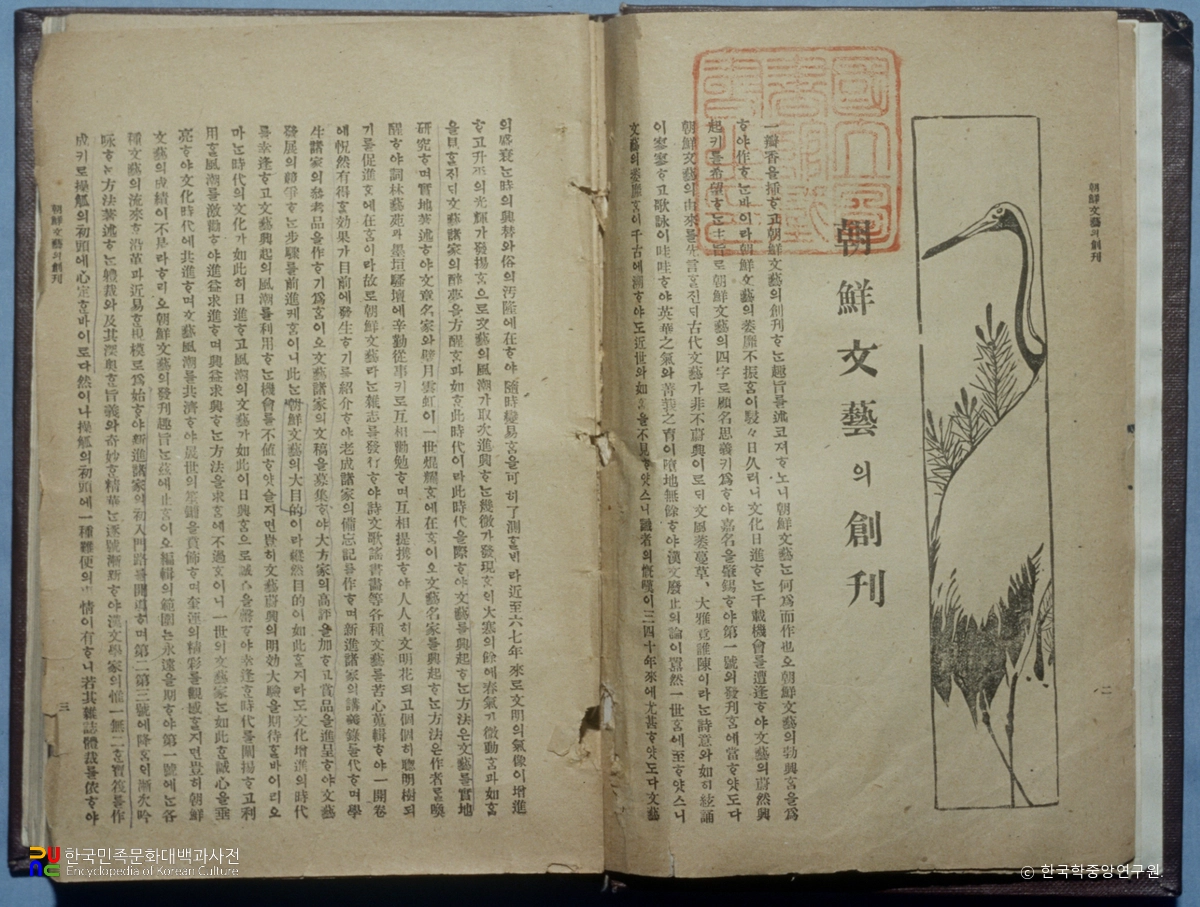 朝鮮文藝의創刊
二
朝鮮文藝의創刊
一瓣香을揷ᄒᆞ고朝鮮文藝의創刊ᄒᆞᄂᆞᆫ趣旨를述코져ᄒᆞ노니朝鮮文藝ᄂᆞᆫ何爲而作也오朝鮮文藝의勃興홈을爲
ᄒᆞ야作ᄒᆞᄂᆞᆫ바이라朝鮮文藝의萎靡不振홈이駸々日久러니文化日進ᄒᆞᄂᆞᆫ千載機會를遭逢ᄒᆞ야文藝의蔚然興
起키를希望ᄒᆞᄂᆞᆫ主旨로朝鮮文藝의四字로顧名思義키爲ᄒᆞ야嘉名을肇錫ᄒᆞ야第一號의發刊홈에當ᄒᆞ얏도다
朝鮮文藝의由來를先言ᄒᆞᆯ진ᄃᆡ古代文藝가非不蔚興이로ᄃᆡ文風萎蔓草、大雅竟誰陳이라ᄂᆞᆫ詩意와如히絃誦
이寥寥ᄒᆞ고歌詠이哇哇ᄒᆞ야英華之氣와菁莪之育이墜地無餘ᄒᆞ야漢文廢止의論이囂然一世홈에至ᄒᆞ얏스니
文藝의萎靡홈이千古에溯ᄒᆞ야도近世와如홈을不見ᄒᆞ얏스니識者의慨嘆이三四十年來에尤甚ᄒᆞ얏도다文藝
의盛衰ᄂᆞᆫ時의興替와俗의汚隆에在ᄒᆞ야隨時變易홈을可히了測ᄒᆞᆯ비라近至六七年來로文明의氣像이增進
ᄒᆞ고升平의光輝가發揚홈으로文藝의風潮가取次進興ᄒᆞᄂᆞᆫ幾微가發現홈이大寒의餘에春氣가微動홈과如홈
을見ᄒᆞᆯ진ᄃᆡ文藝諸家의醉夢을方醒홈과如ᄒᆞᆫ此時代이라此時代을際ᄒᆞ야文藝를興起ᄒᆞᄂᆞᆫ方法은文藝를實地
硏究ᄒᆞ며實地著述ᄒᆞ야文章名家와譬月雲虹이一世焜耀홈에在홈이오文藝名家를興起ᄒᆞᄂᆞᆫ方法은作者를喚
醒ᄒᆞ야詞林藝苑과墨垣騷壇에辛勤從事키로互相勸勉ᄒᆞ며互相提携ᄒᆞ야人人히文明花되고個個히聰明樹되
기를促進홈에在홈이라故로朝鮮文藝라ᄂᆞᆫ雜志를發行ᄒᆞ야詩文歌謠書畵等各種文藝를苦心蒐輯ᄒᆞ야一開卷
에怳然有得ᄒᆞᆫ効果가目前에發生ᄒᆞ기를紹介ᄒᆞ야老成諸家의備忘記를作ᄒᆞ며新進諸家의講義錄을代ᄒᆞ며學
生諸家의參考品을作ᄒᆞ기爲홈이오文藝諸家의文稿을募集ᄒᆞ야大方家의高評을加ᄒᆞ고賞品을進呈ᄒᆞ야文藝
發展의競爭ᄒᆞᄂᆞᆫ步驟를前進케홈이니此ᄂᆞᆫ朝鮮文藝의大目的이라縱然目的이如此ᄒᆞᆯ지라도文化增進의時代
를幸逢ᄒᆞ고文藝興起의風潮를利用ᄒᆞᄂᆞᆫ機會를不値ᄒᆞ얏슬지면豈히文藝蔚興의明効大驗을期待ᄒᆞᆯ바이리오
마ᄂᆞᆫ時代의文化가如此히日進ᄒᆞ고風潮의文藝가如此이日興홈으로誠心을齊ᄒᆞ야幸逢ᄒᆞᆫ時代를開揚ᄒᆞ고利
用ᄒᆞᆯ風潮를激勸ᄒᆞ야進益求進ᄒᆞ며興益求興ᄒᆞᄂᆞᆫ方法을求홈에不過홈이니一世의文藝家ᄂᆞᆫ如此ᄒᆞᆫ誠心을垂
亮ᄒᆞ야文化時代에共進ᄒᆞ며文藝風潮를共濟ᄒᆞ야晟世의黼黻을賁飾ᄒᆞ며奎運의精彩를觀感ᄒᆞᆯ지면豈히朝鮮
文藝의成績이不見라ᄒᆞ리오朝鮮文藝의發刊趣旨ᄂᆞᆫ玆에止홈이오編輯의範圍ᄂᆞᆫ永遠을期ᄒᆞ야第一號에ᄂᆞᆫ各
種文藝의流來ᄒᆞᆫ沿革과近易ᄒᆞᆫ規模로爲始ᄒᆞ야新進諸家의初入門路를開導ᄒᆞ며第二第三號에降ᄒᆞ야漸次吟
咏ᄒᆞᄂᆞᆫ方法著述ᄒᆞᄂᆞᆫ體裁와及其深奧ᄒᆞᆫ旨義와奇妙ᄒᆞᆫ精華ᄂᆞᆫ逐號漸新ᄒᆞ야漢文學家의惟一無二ᄒᆞᆫ寶筏를作
成키로操觚의初頭에心定ᄒᆞᆫ바이로다然이나操觚의初頭에一種難便의情이有ᄒᆞ니若其雜誌體裁를依ᄒᆞ야
朝鮮文藝의創刊
三
한국민족문화대백과사전
Encyclopedia of Korean Culture
ⓒ 한국학중앙연구원